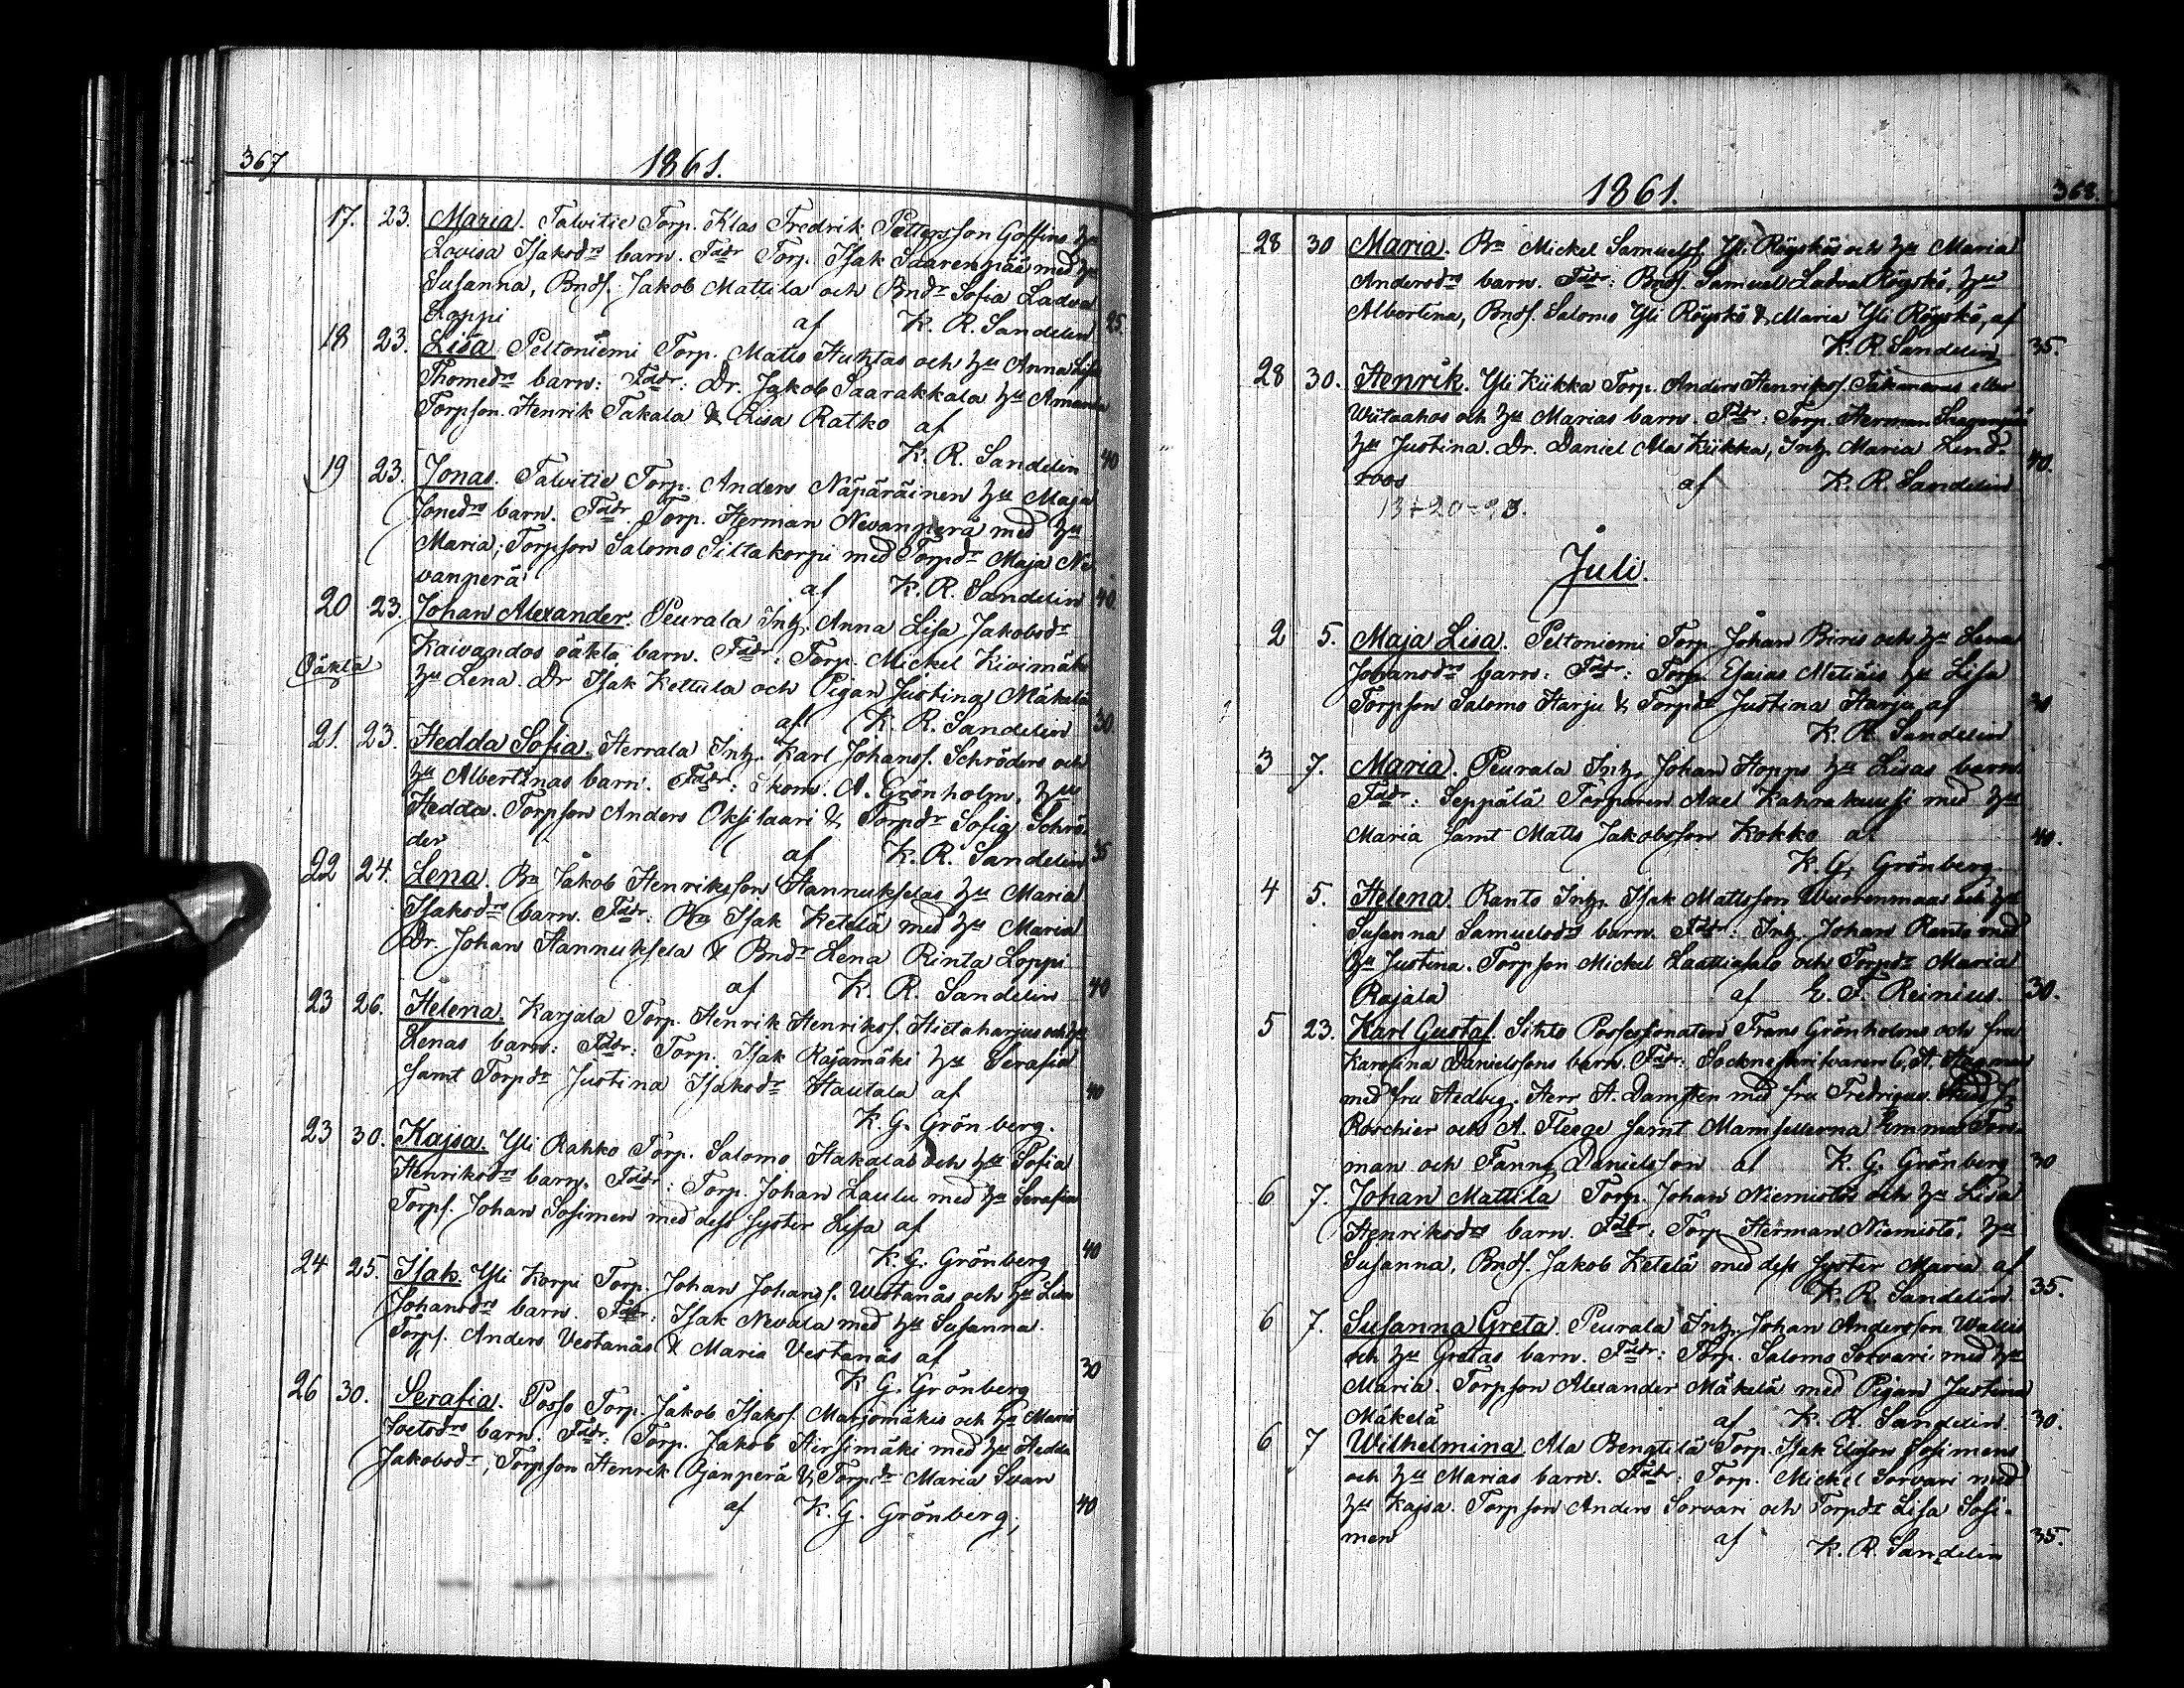 367
1861.
17. 23. Maria. Talvitie Torp. Klas Fredrik Pettersson Goffins hu
Lovisa Isaksdrs barn. Fadr Torp. Isak Saarenpää med hu
Susanna, Bnds. Jakob Mattila och Bndr Sofia Ladva
Loppi af K. R. Sandelin 25.
18 23. Lisa Peltoniemi Torp. Matts Huhtas och hu Anna Lisa
Thomedrs barn: Fadr: Dr. Jakob Saarakkala hu Amanda
Torpson. Henrik Takala & Lisa Ratko af
K. R. Sandelin 40
19 23. Jonas. Talvitie Torp. Anders Näpäräinen hu Maja
Jonedrs barn. Fadr. Torp. Herman Nevanperä med hu
Maria; Torpson Salomo Siltakorpi med Torpdr Maja Ne-
vanperä af K. R. Sandelin 40.
20 23. Johan Alexander. Peurala Inh. Anna Lisa Jakobsdr
Kaivandos oäkta barn. Fadr: Torp. Mickel Kivimäki
Oäkta hu Lena. Dr Isak Kettula och Pigan Justina Mäkelä
af K. R. Sandelin 30.
21. 23. Hedda Sofia. Herrala Inh. Karl Johanss. Schröders och
hu Albertinas barn. Fadr: Skom. A. Grönholm, hu
Hedda. Torpson Anders Oksilaari & Torpdr Sofia Schrö-
der af K. R. Sandelin 35
22 24. Lena. Bn Jakob Henriksson Hannukselas hu Maria
Isaksdrs barn. Fadr: Bn Isak Ketelä med hu Maria
Dr. Johan Hannuksela & Bndr Lena Rinta Loppi
af K. R. Sandelin 40
23 26. Helena. Karjala Torp. Henrik Henrikss. Hietaharjus och hu
Lenas barn: Fadr: Torp. Isak Rajamäki hu Serafia
samt Torpdr Justina Isaksdr Hautala af 40
K. G. Grönberg.
23 30. Kajsa. Yli Rahko Torp. Salomo Hakalas och hu Sofia
Henriksdrs barn. Fadr: Torp. Johan Laulu med hu Serafia
Torps. Johan Sosimen med dess syster Lisa af
K. G. Grönberg 40
24 25. Isak. Yli Korpi Torp. Johan Johanss. Westanäs och hu Lisa
Johansdrs barn. Fadr: Isak Nevala med hu Susanna.
Torps. Anders Vestanäs & Maria Vestanäs af
K. G. Grönberg 30
26 30. Serafia. Posso Torp. Jakob Isakss. Marjomäkis och hu Maria
Joelsdrs barn. Fadr: Torp. Jakob Hirsimäki med hu Hedda
Jakobsdr, Torpson Henrik Ojanperä & Torpdr Maria Svan
af K. G. Grönberg, 40
1861.
368.
28 30 Maria. Bn Mickel Samuelss. Yli Röyskös och hu Maria
Andersdrs barn. Fadr: Bnds. Samuel Ladva Röyskö, hu
Albertina, Bnds. Salomo Yli Röyskö & Maria Yli Röyskö, af
K. R. Sandelin 35.
28 30. Henrik. Yli Kiikka Torp. Anders Henrikss. eller
Wiitaahos och hu Marias barn. Fadr: Torp. Herman
hu Justina. Dr. Daniel Ala Kiikka, Inh. Maria Lind-
roos af K. R. Sandelin 40.
13+20=33.
Juli.
2 5. Maja Lisa. Peltoniemi Torp Johan och hu Lena
Johansdrs barn: Fadr: Torp. Esaias Metiäis hu Lisa
Torpson Salomo Harju & Torpdr Justina Harju af 30
K. R. Sandelin
3 7. Maria. Peurala Inh. Johan Hopps hu Lisas barn.
Fadr: Seppälä Torparen Axel Kahrakuusi med hu
Maria samt Matts Jakobsson Kokko af 40.
K. G. Grönberg.
4 5. Helena. Ranto Inh. Isak Mattsson och hu
Susanna Samuelsdrs barn. Fadr: Inh. Johan Ranto med
hu Justina. Torpson Mickel Lauttasalo och Torpdr Maria
Rajala af E. F. Reinius. 30.
5 23. Karl Gustaf. Sikto Possessionaten Frans Grönholms och fru
Karolina Danielssons barn. Fadr: Sockneskrifvaren C. A. Hagman
med fru Hedvig. Herr A. Damsten med fru Fredrique.
Roschier och A. Flege samt Mamsellerna Emma Fors-
man och Fanny Danielsson af K. G. Grönberg 30
6 7. Johan Mattila Torp. Johan Niemistös och hu Lisa
Henriksdrs barn. Fadr: Torp Herman Niemistö, hu
Susanna, Bnds. Jakob Ketelä med dess syster Maria af
K. R. Sandelin. 35.
6 7. Susanna Greta. Peurala Inh. Johan Andersson Wallis
och hu Gretas barn. Fadr: Torp. Salomo Sorvari med hu
Maria. Torpson Alexander Mäkelä med Pigan Justina
Mäkelä af K. R. Sandelin 30.
6 7 Wilhelmina. Ala Bengtilä Torp. Isak Eliasson Sosimens
och hu Marias barn. Fadr: Torp. Mickel Sorvari med
hu Kajsa. Torpson Anders Sorvari och Torpdr Lisa Sosi-
men af K. R. Sandelin 35.